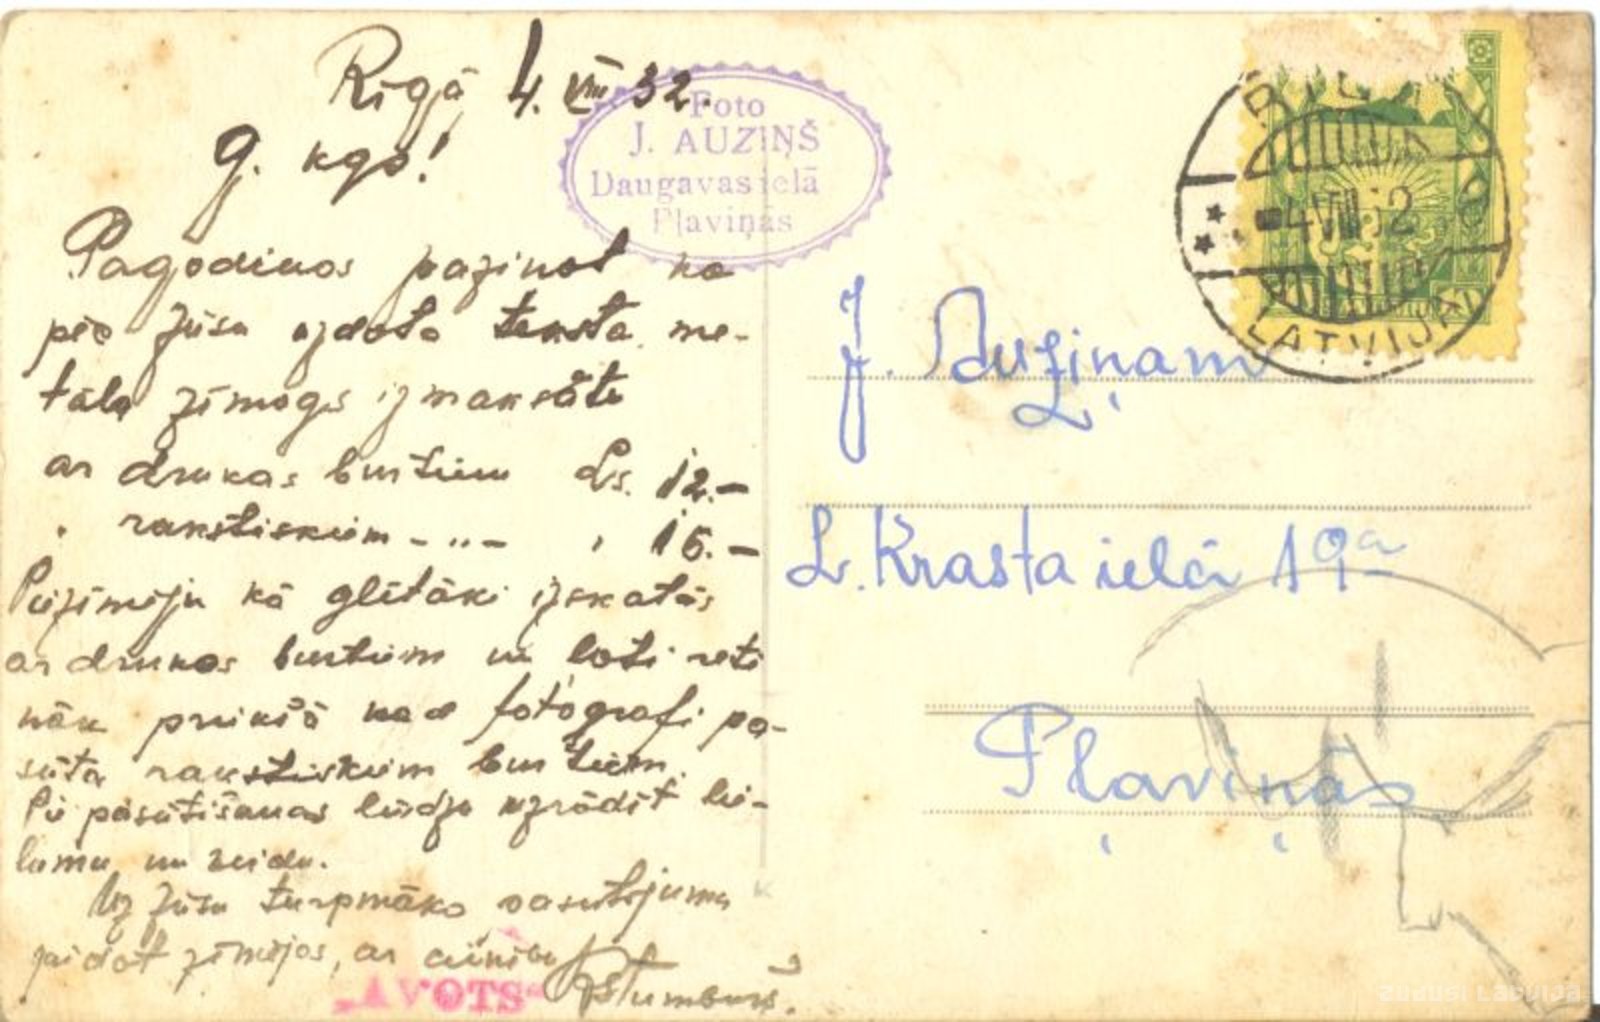 Rīgā 4. VIII 32.
g. kgs!
Pagodinos paziņot ka
pēc Jūsu uzdota teksta me-
tāla zīmogs izmaksāte
ar drukas burtiem Ls. 12.-
" rakstiskiem - " - " 15.-
Piezīmēju kā glītāki izskatās
ar drukas burtiem un ļoti reti
nāk priekšā kad fotografi pa-
sūta rakstiskiem burtiem.
Pie pasūtīšanas lūdzu uzrādīt lie-
lumu un veidu.
Uz Jūsu turpmāko pasutijumu
gaidot zīmējos, ar cieņību
PStumburs.
"AVOTS"
Foto
J. AUZIŅŠ
Daugavas ielā
Pļaviņās
RIGA
4 VIII 32
LATVIJA
J. Auziņam
L. Krasta ielā 19a
Pļaviņās
zudusi Latvija